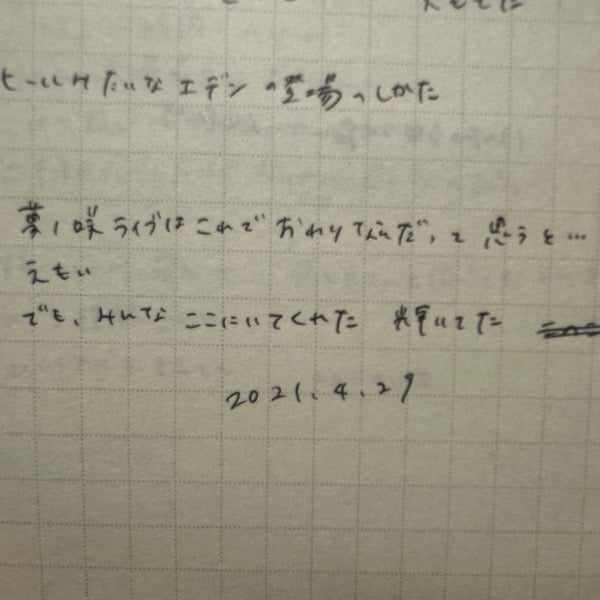 ヒールみたいなエデンの登場のしかた
夢ノ咲ライブはこれでおわりなんだ、と思うと…
えもい
でも、みんなここにいてくれた 輝いてた
2021.4.29